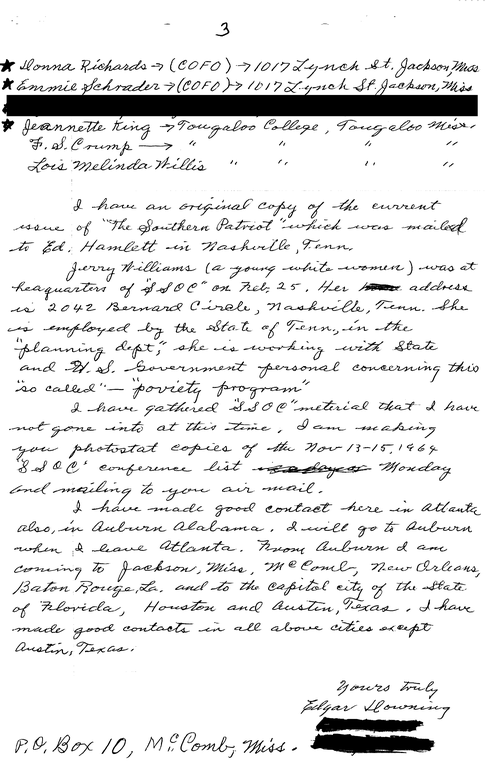 3
★ Donna Richards → (COFO) → 1017 Lynch St. Jackson, Miss
★ Emmie Schrader → (COFO) → 1017 Lynch St. Jackson, Miss
★ Jeannette King → Tougaloo College, Tougaloo Miss.
F. S. Crump → " " " "
Lois Melinda Willis " " " "
I have an original copy of the current
issue of "The Southern Patriot" which was mailed
to Ed. Hamlett in Nashville, Tenn.
Jerry Williams (a young white women) was at
heaquarters of "SSOC" on Feb, 25. Her address
is 2042 Bernard Circle, Nashville, Tenn. She
is employed by the State of Tenn, in the
"planning dept," she is working with State
and U.S. Government personal concerning this
"so called" — "poviety program"
I have gathered "SSOC" meterial that I have
not gone into at this time, I am making
you photostat copies of the Nov 13-15, 1964
SSOC' conference list Monday
and mailing to you air mail.
I have made good contact here in Atlanta
also, in Auburn Alabama. I will go to Auburn
when I leave Atlanta. From Auburn I am
coming to Jackson, Miss, McComb, New Orleans,
Baton Rouge, La. and to the capitol city of the State
of Florida, Houston and Austin, Texas. I have
made good contacts in all above cities except
Austin, Texas.
Yours truly
Edgar Downing
P.O. Box 10, McComb, Miss.